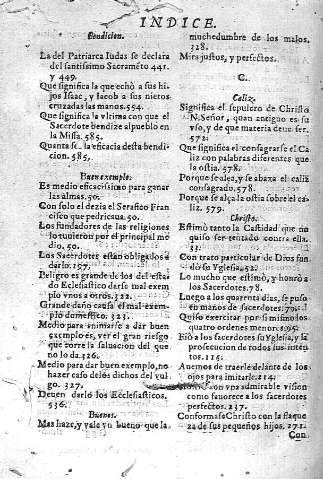 INDICE.
Bendicion.
La del Patriarca Iudas se declara
del santissimo Sacrameto 441.
y 449.
Que significa la que echò a sus hi-
jos Isaac, y Iacob a sus nietos
cruzadas las manos. 594.
Que significa la vltima con que el
Sacerdote bendize al pueblo en
la Missa. 585.
Quanta sea la eficacia desta bendi-
cion. 585,
Buen exemplo.
Es medio eficacissimo para ganar
las almas. 50.
Con solo el dezia el Serafico Fran
cisco que predicaua. 50.
Los fundadores de las religiones
lo tuuieron por el principal me
dio. 50.
Los Sacerdotes estàn obligados a
darlo. 157.
Peligro es grande de los del esta-
do Eclesiastico darse mal exem-
plo vnos a otros. 322.
Grande daño causa el mal exem-
plo domestico. 323.
Medio para animarse a dar buen
exemplo es, ver el gran riesgo
que corre la saluacion del que
no lo da. 326.
Medio para dar buen exemplo, no
hazer caso de los dichos del vul-
go. 327.
Deuen darlo los Eclesiasticos.
536.
Buenos.
Mas haze, y vale vn bueno que la
muchedumbre de los malos.
328.
Mira justos, y perfectos.
C.
Caliz.
Significa el sepulcro de Christo
N. Señor, quan antiguo es su
vso, y de que materia deue ser.
571.
Que significa el consagrarse el Ca
liz con palabras diferentes que
la ostia. 578.
Porque se alça, y se abaxa el caliz
consagrado. 578.
Porque se alça la ostia sobre el ca-
liz. 579.
Christo.
Estimò tanto la Castidad que no
quiso ser tentado contra ella.
Con trato particular de Dios fun
dò su Yglesia, 52
Lo mucho que estimò, y honrò a
los Sacerdotes. 78.
Luego a los quarenta dias, se puso
en manos de sacerdotes.
Quiso exercitar por si mismo los
quatro ordenes menores
a los sacerdotes su Yglesia, y la
prosecucion de todos sus inten
tos. 115.
Auemos de traerle delante de los
ojos para imitarle. 214.
con vna admirable vision
como fauorece a los sacerdotes
perfectos. 237.
Conformase Christo con la flaque
za de sus pequeños hijos. 271.
Con